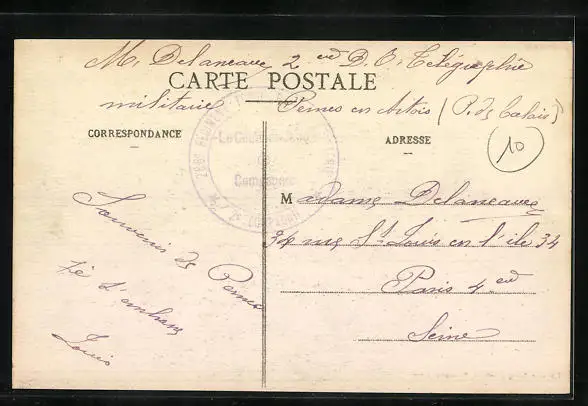 M. Delaneave 2 eme D. O. Télégraphie
CARTE POSTALE
militaire Pernes en Artois (P. de Calais)
CORRESPONDANCE
ADRESSE
10
Compagnie
Madame Delaneave
34 rue St Louis en l'ile 34
Paris 4 eme
Seine
Souvenir de Pernes
Je t'embrasse
Louis